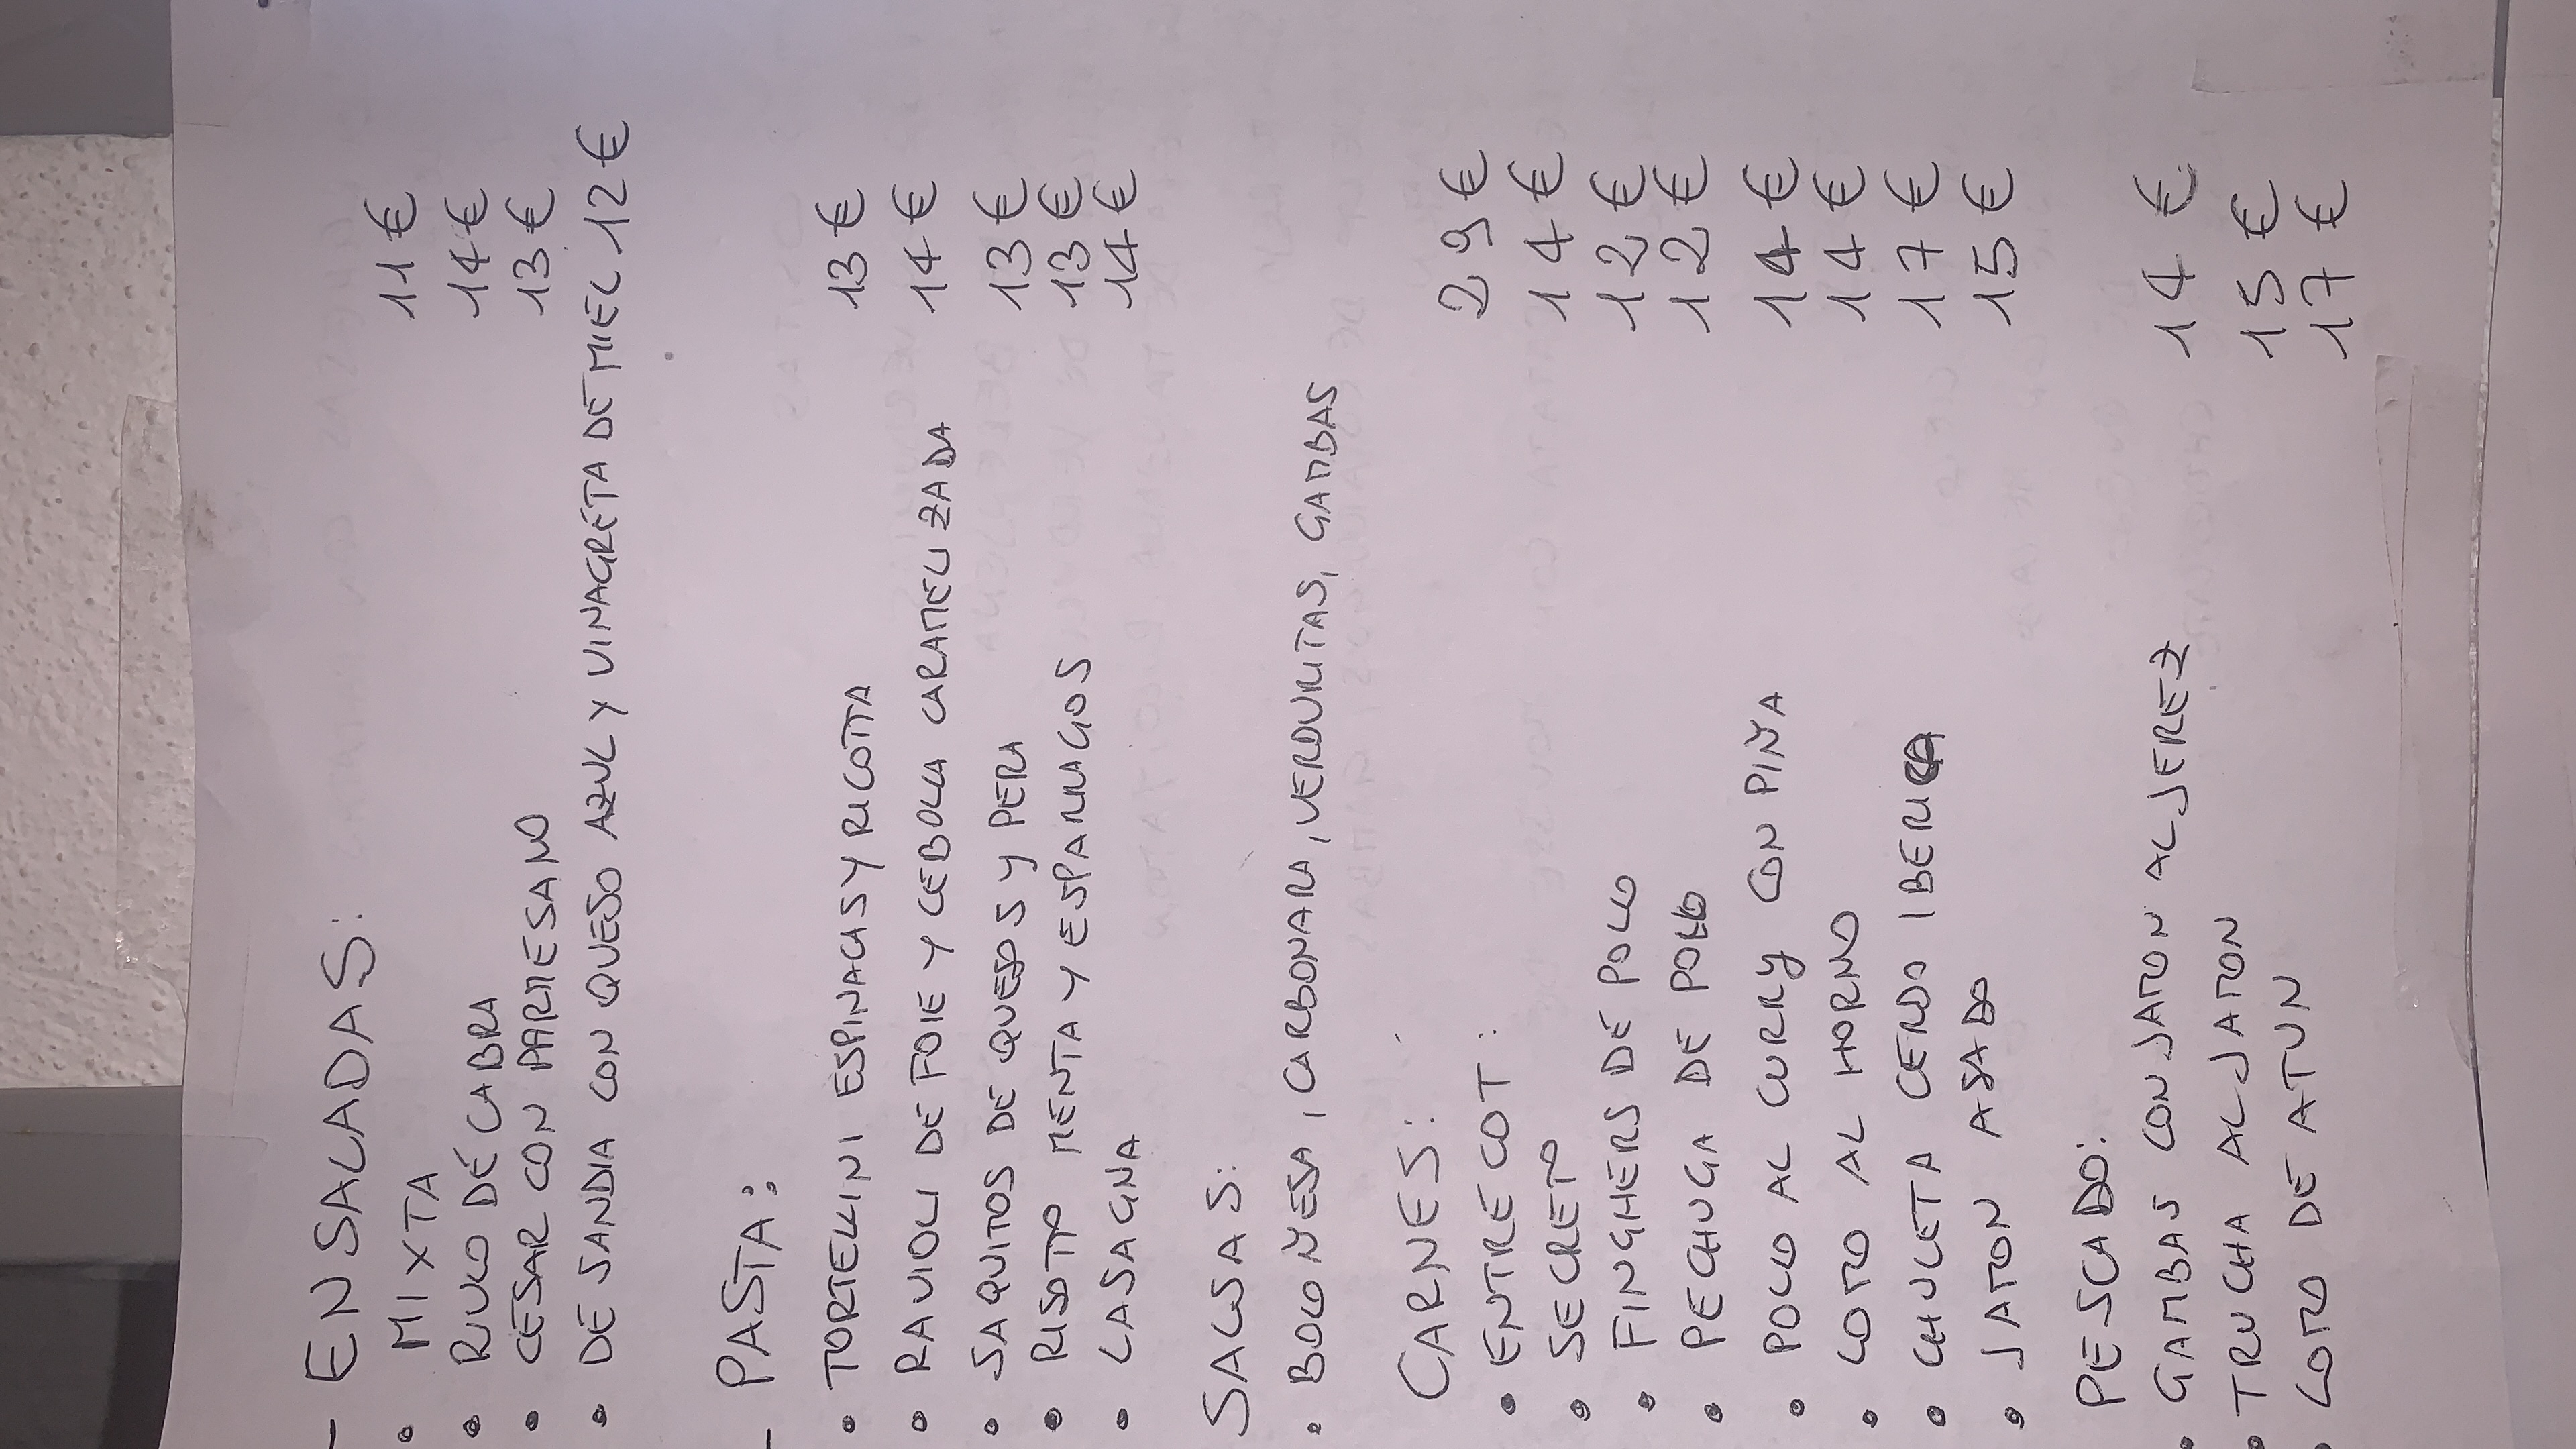 - ENSALADAS:
• MIXTA 11€
• RULO DE CABRA 14€
• CESAR CON PARMESANO 13€
• DE SANDIA CON QUESO AZUL Y VINAGRETA DE MIEL 12€
- PASTA:
• TORTELLINI ESPINACAS Y RICOTTA 13€
• RAVIOLI DE FOIE Y CEBOLLA CARAMELIZADA 14€
• SAQUITOS DE QUESOS Y PERA 13€
• RISOTTO MENTA Y ESPARRAGOS 13€
• LASAGNA 14€
SALSAS:
• BOLOÑESA, CARBONARA, VERDURITAS, GAMBAS
CARNES:
• ENTRECOT: 29€
• SECRETO 14€
• FINGHERS DE POLLO 12€
• PECHUGA DE POLLO 12€
• POLLO AL CURRY CON PIÑA 14€
• LOMO AL HORNO 14€
• CHULETA CERDO IBERICA 17€
• JAMON ASADO 15€
PESCADO:
• GAMBAS CON JAMON AL JEREZ 14€
• TRUCHA AL JAMON 15€
• LOMO DE ATUN 17€